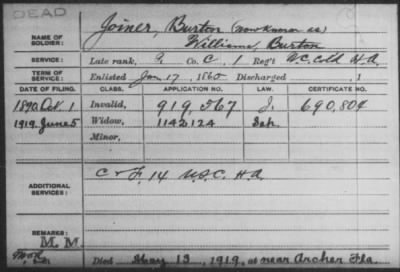 DEAD
NAME OF SOLDIER: Joiner, Burton (now known as)
Williams, Burton
SERVICE: Late rank, ?, Co. C, 1 Reg't N.C. Cold H.A.
TERM OF SERVICE: Enlisted Jan. 17, 1865 Discharged , 1
DATE OF FILING. CLASS. APPLICATION NO. LAW. CERTIFICATE NO.
1890 Oct. 1 Invalid, 919,567 J. 690,804
1919 June 5 Widow, 1142124
Minor,
ADDITIONAL SERVICES: C & F. 14 U.S.C. H.A.
REMARKS: M. M.
Died May 13, 1919, at near Archer Fla.